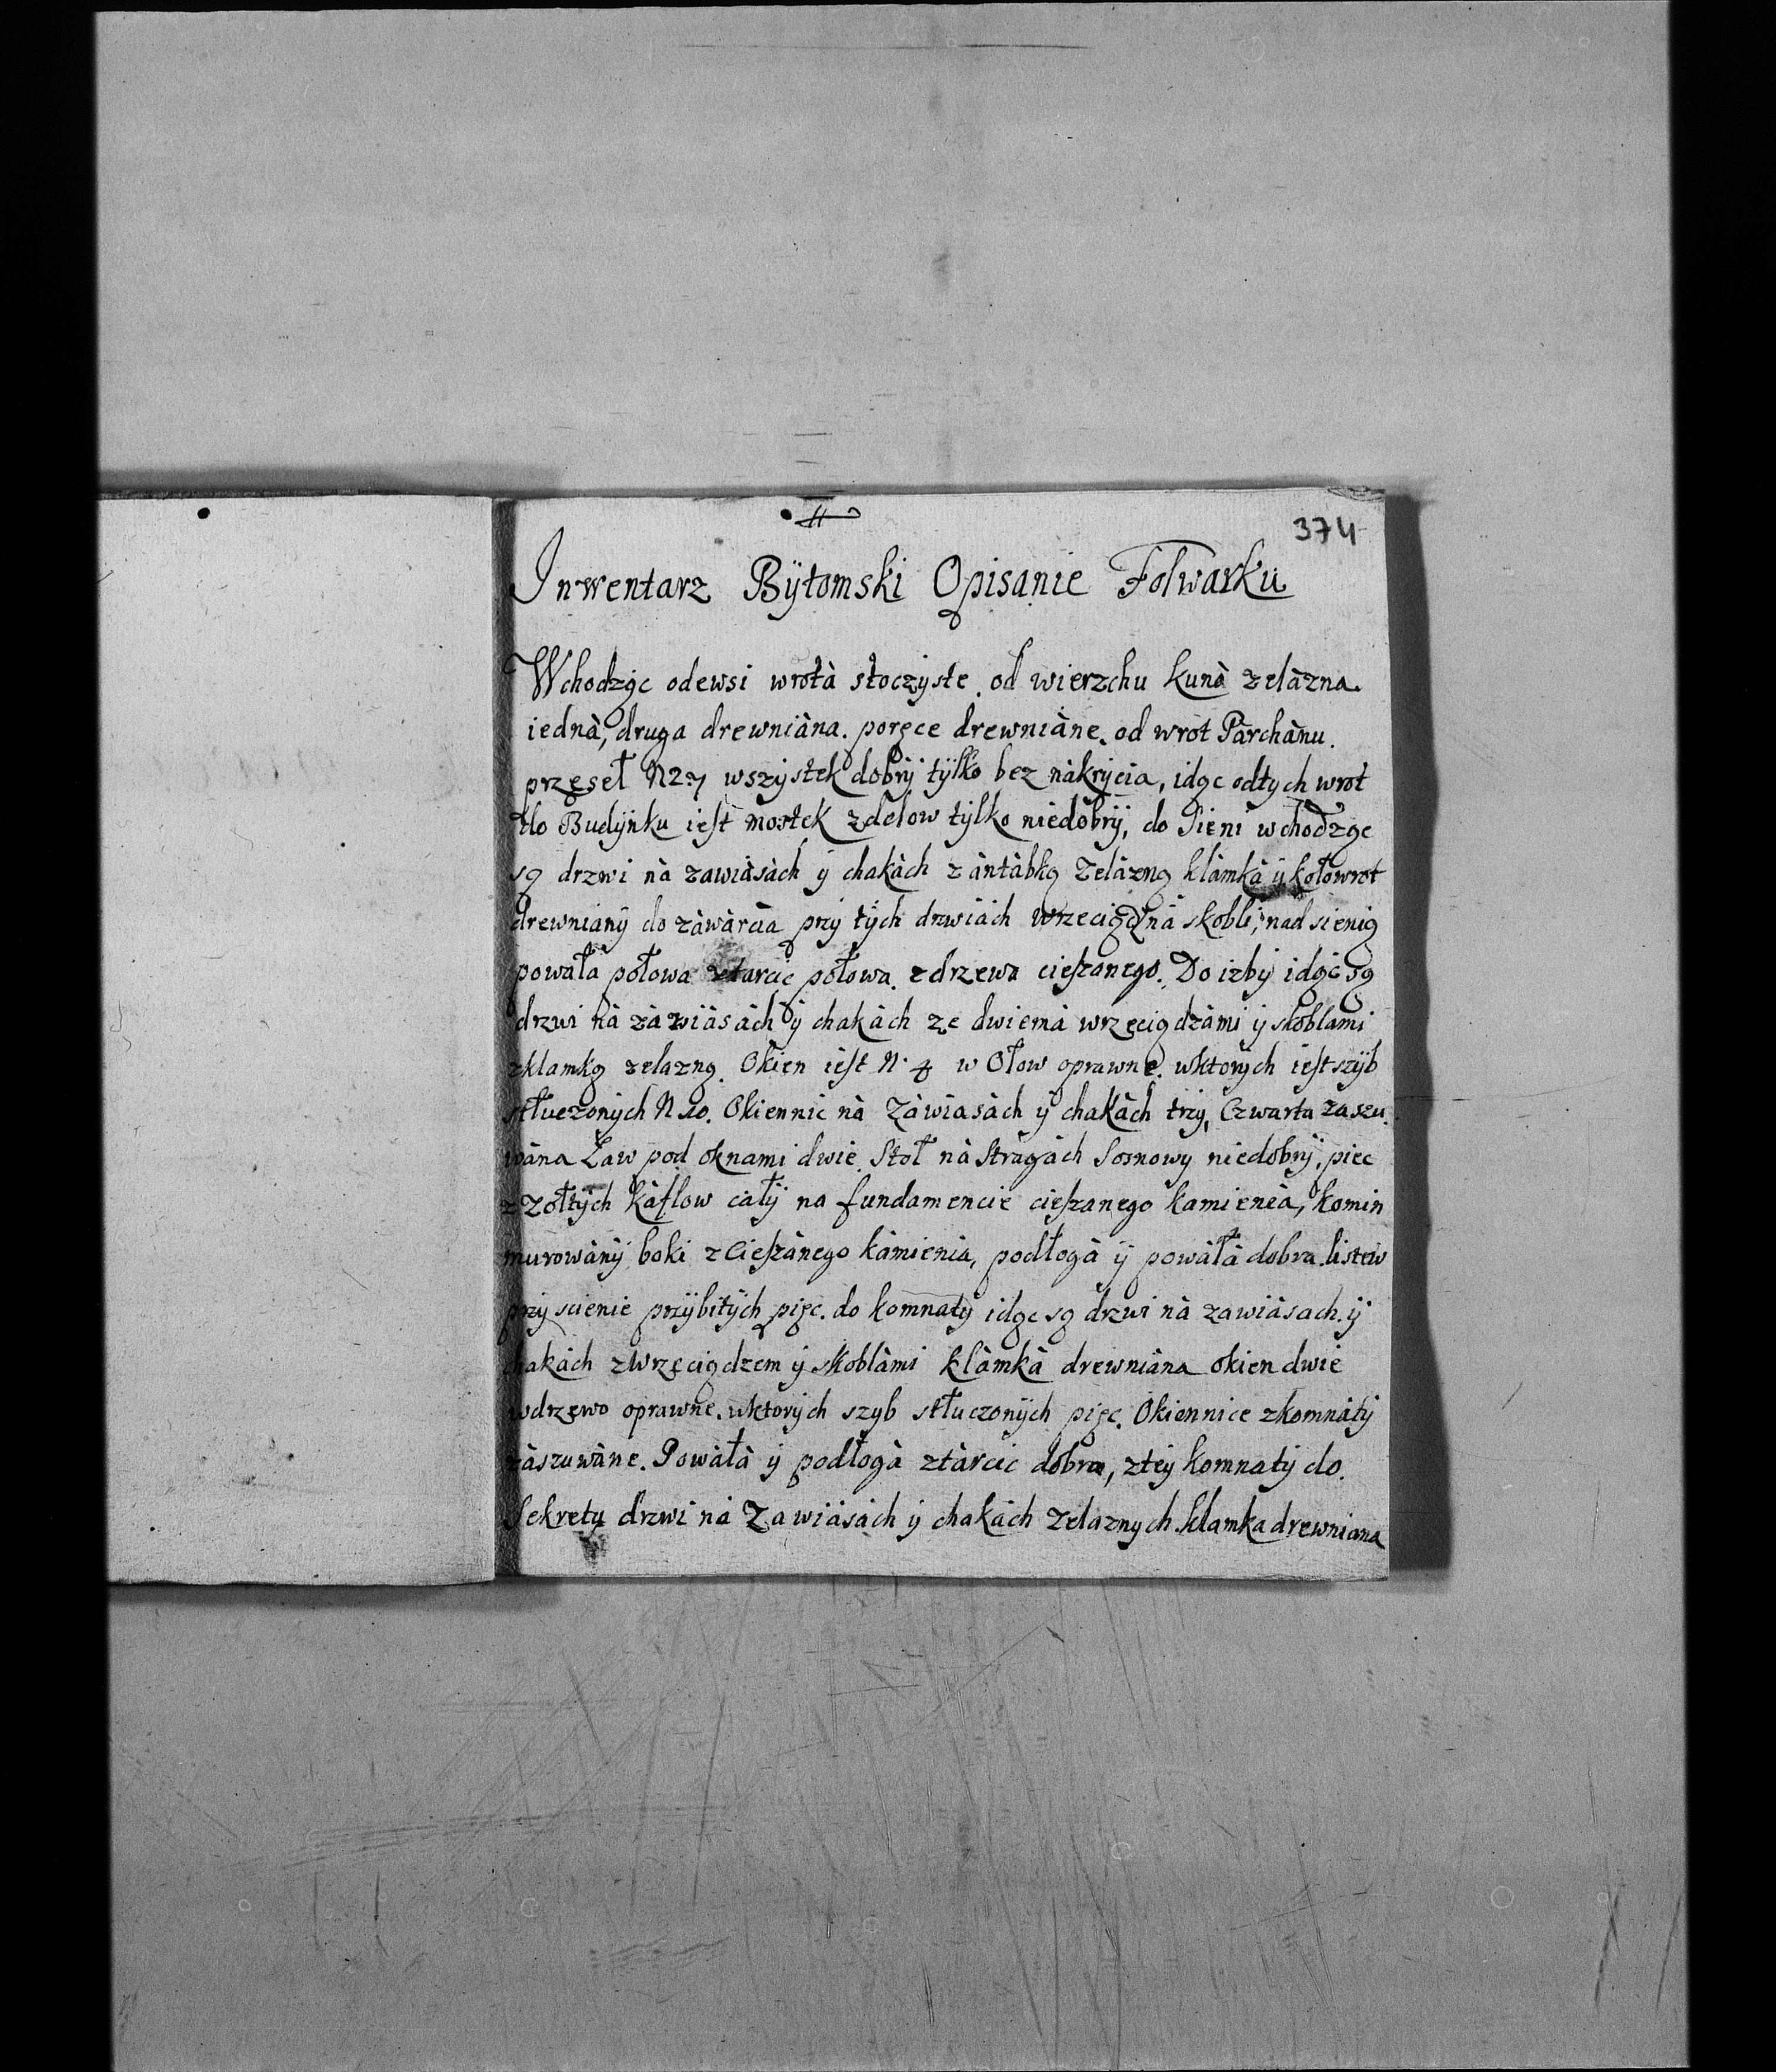 374
Inwentarz Bÿtomski Opisanie Folwarku
Wchodząc odewsi wrotà stoczÿste od wierzchu kunà zelàzna
iednà, druga drewniàna. poręce drewniàne. od wrot Pàrchànu.
przęseł N27 wszÿstek dobrÿ tÿlko bez nàkrÿcia, idąc odtÿch wrot
do Budÿnku iest mostek zdelow tÿlko niedobrÿ, do Sieni wchodząc
są drzwi nà zawiàsàch ÿ chakàch z àntàbką zelàzną klàmkà ÿ kołowrot
drewnianÿ do zàwàrcia przÿ tÿch drzwiàch wrzeciądz nà skobli, nad sienią
powała połowa ztarcic połowa zdrzewa cieszanego. Do izbÿ idąc są
drzwi nà zàwiàsàch ÿ chakàch ze dwiemà wrzęciądzàmi ÿ skoblami
zklamką zelazną. Okien iest N. 4 w Ołow oprawne. wktorÿch iest szÿb
stłuczonÿch N 10. Okiennic nà zàwiasàch ÿ chakàch trzÿ, Czwarta zaszu
wàna Ław pod oknami dwie Stoł nà Stràgàch Sosnowy niedobrÿ, piec
z zołtÿch kàflow całÿ na fundamencie cieszanego kamienia, komin
murowànÿ boki zCieszànego kàmienia, podłogà ÿ powàłà dobra. listew
przÿ scienie przÿbitÿch pięc. do komnatÿ idąc są drzwi nà zawiàsach ÿ
chakàch zwrzęciądzem ÿ skoblàmi klàmkà drewniàna okien dwie
wdrzewo oprawne. wktorÿch szyb stłuczonÿch pięc. Okiennice zkomnàtÿ
zàszuwàne. Powàłà ÿ podłogà ztàrcic dobra, ztÿ komnatÿ do
Sekretu drzwi nà zawiàsàch ÿ chakàch zelaznych klamka drewniana